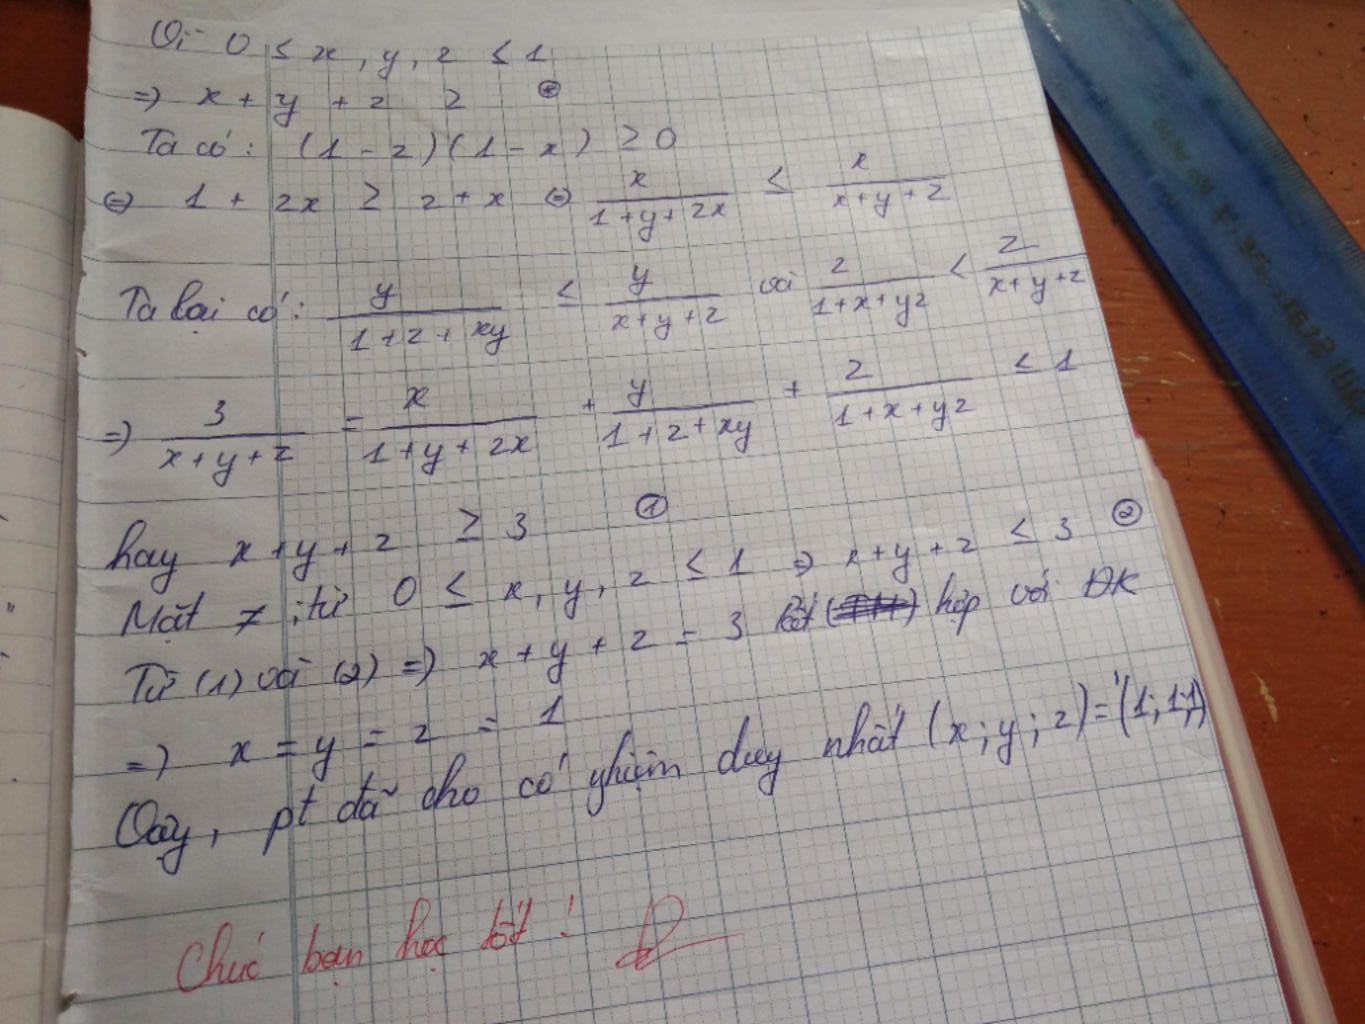 Vì 0 ≤ x, y, z ≤ 1
=> x + y + z ≥
Ta có: (1 - z)(1 - x) ≥ 0
<=> 1 + zx ≥ z + x <=> x/(1+y+zx) ≤ x/(x+y+z)
Ta lại có: y/(1+z+xy) ≤ y/(x+y+z) và z/(1+x+yz) ≤ z/(x+y+z)
=> 3/(x+y+z) = x/(1+y+zx) + y/(1+z+xy) + z/(1+x+yz) ≤ 1
hay x+y+z ≥ 3 (1)
Mặt ≠ ; từ 0 ≤ x, y, z ≤ 1 => x+y+z ≤ 3 (2)
Từ (1) và (2) => x+y+z = 3 kết hợp với ĐK
=> x = y = z = 1
Vậy, pt đã cho có nghiệm duy nhất (x; y; z) = (1; 1; 1)
Chúc bạn học tốt!